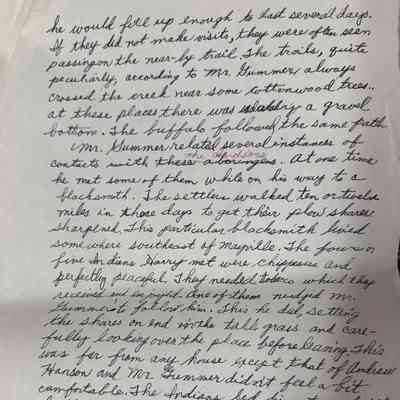 he would fill up enough to last several days.
If they did not make visits, they were often seen
passing on the near-by trail. The trails, quite
peculiarly, according to Mr. Gummer, always
crossed the creek near some cottonwood trees..
at these places there was usually a gravel
bottom. The buffalo followed the same path.
Mr. Gummer related several instances of
the Indians
contacts with these aborigines. At one time
he met some of them while on his way to a
blacksmith. The settlers walked ten or twelve
miles in those days to get their plow shares
sharpened. This particular blacksmith lived
somewhere southeast of Mayville. The four or
five Indians Harry met were Chippewa and
perfectly peaceful. They needed tobacco which they
received and enjoyed. One of them nudged Mr.
Gummer to follow him. This he did, setting
the shares on end in the tall grass and care-
fully looking over the place before leaving. This
was far from any house except that of Andrew
Hanson and Mr. Gummer didn't feel a bit
comfortable. The Indians led him to